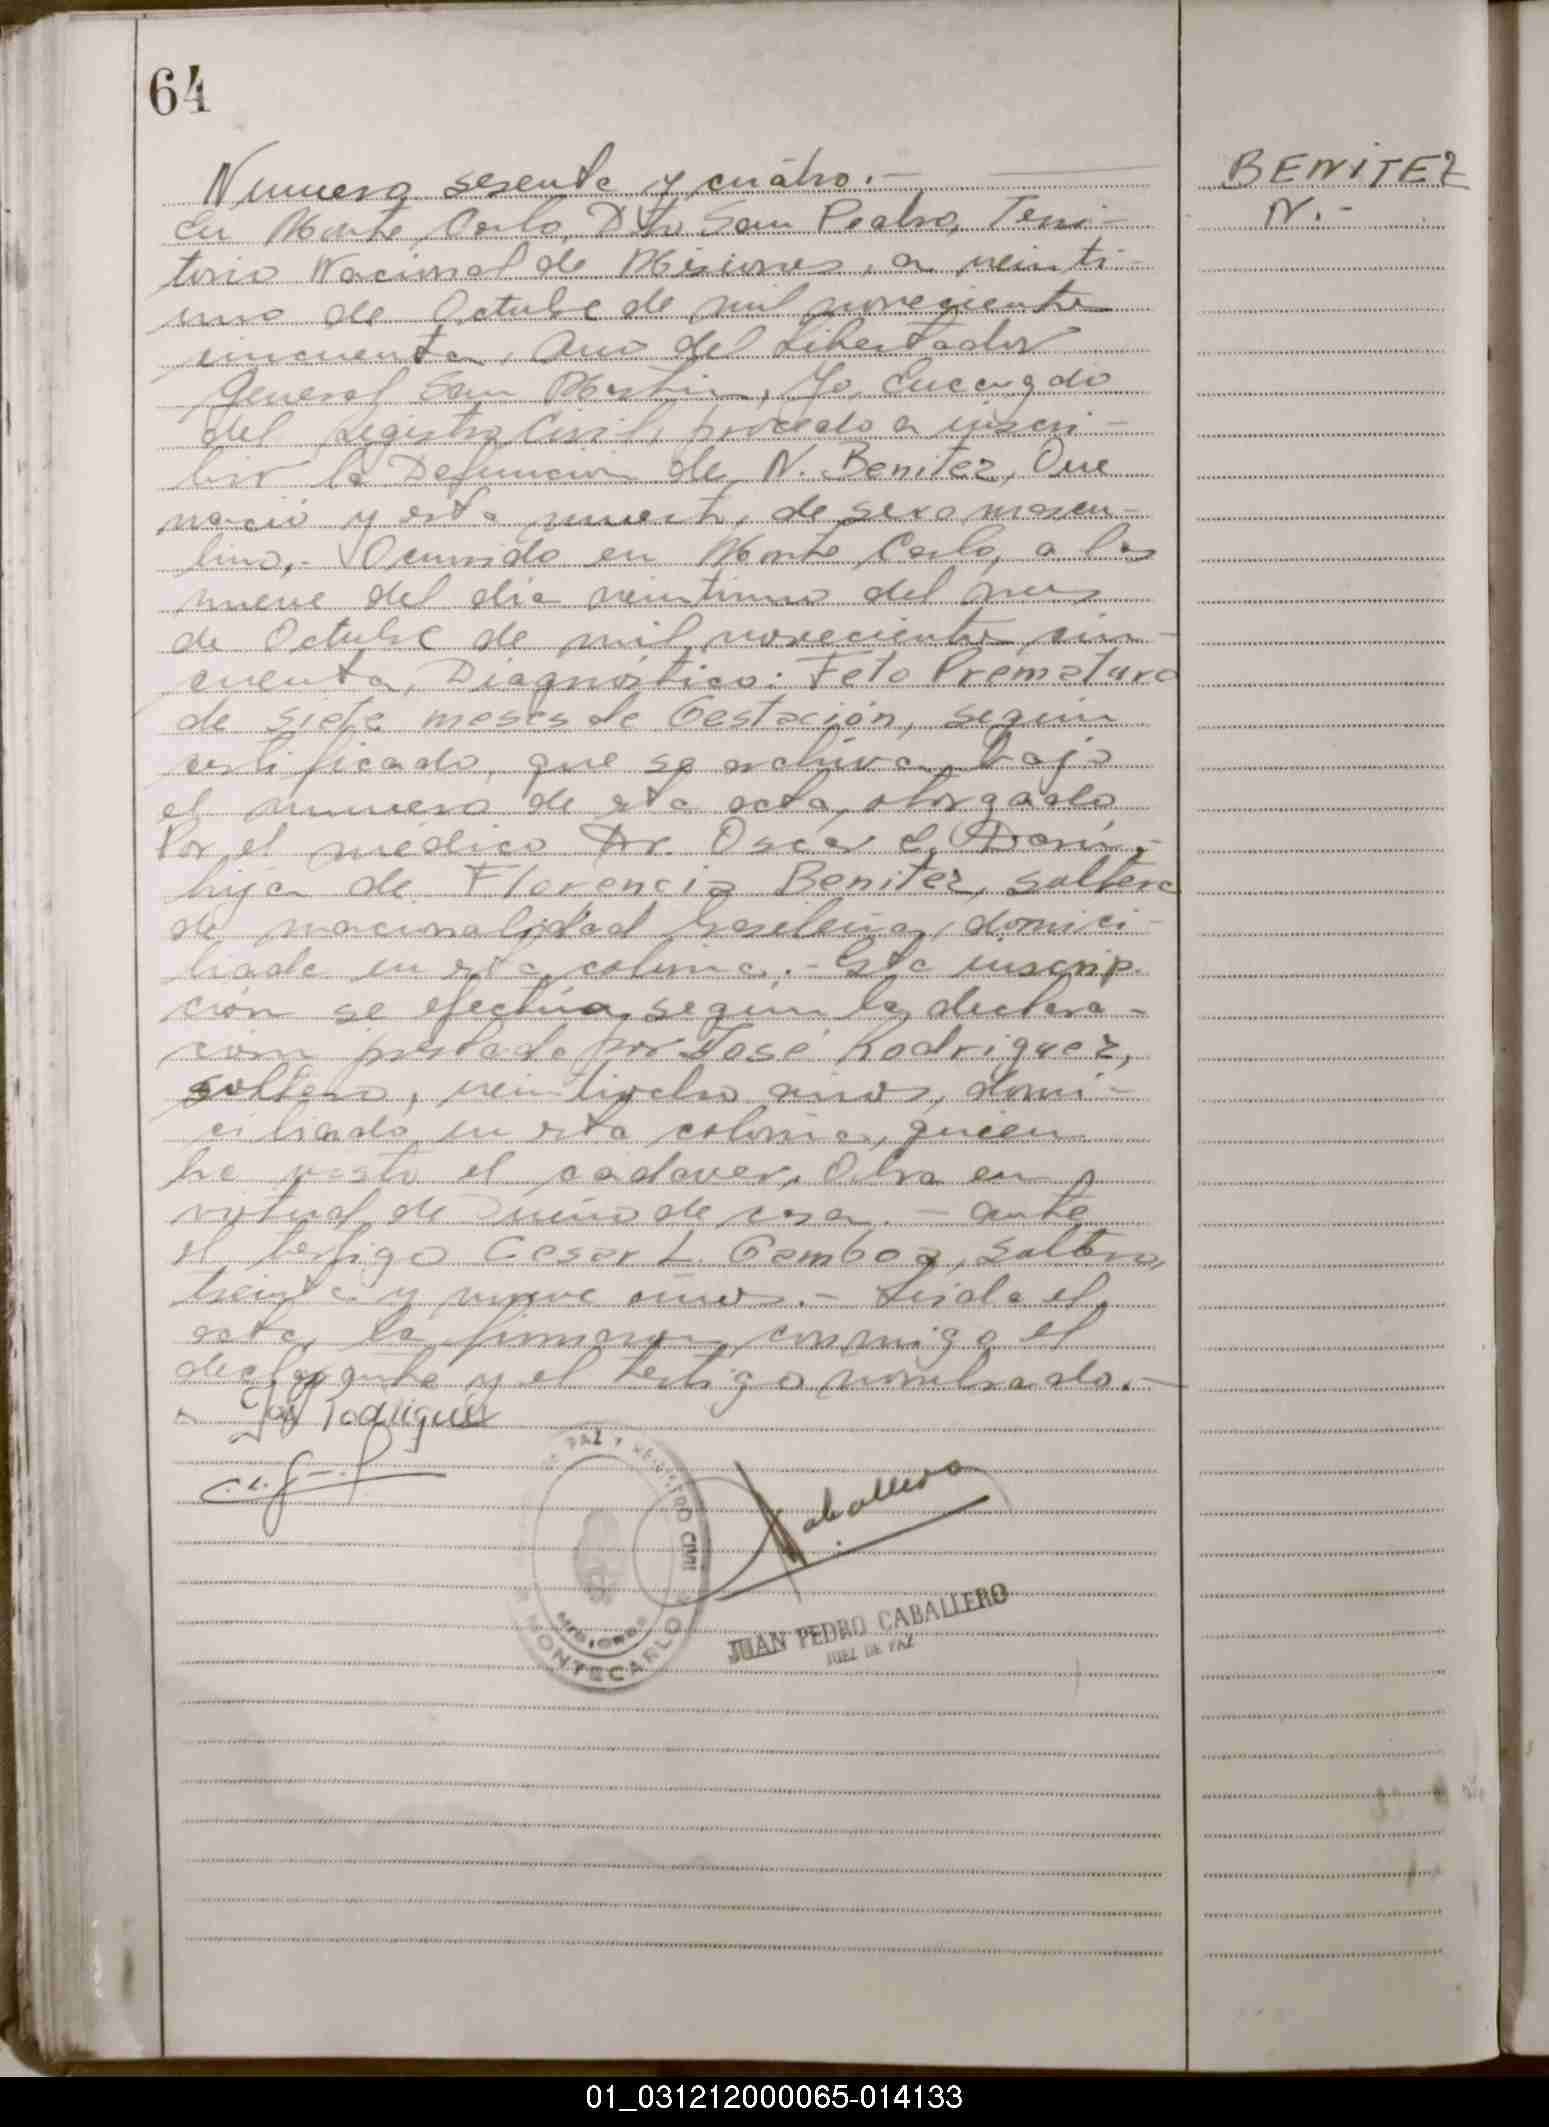 64
Numero sesenta y cuátro.-
BENITEZ
N.-
En Monte Carlo, Dto San Pedro, Terri-
torio Nacional de Misiones, a veinti-
uno de Octubre de mil novecientos
cincuenta, Ano del Libertador
General San Martin, Yo, Encargado
del Registro Civil, procedo a inscri-
bir la Defuncion de N. Benitez, Que
nació y esta muerto, de sexo mascu-
lino.- Ocurrido en Monte Carlo, a las
nueve del día veintiuno del mes
de Octubre de mil novecientos cin-
cuenta, Diagnóstico: Feto Prematuro
de siete meses de Gestación, según
certificado, que se archiva bajo
el numero de esta acta, otorgado
Por el médico Dr. Oscar
hijo de Florencia Benitez, soltera
de nacionalidad brasileña, domici-
liada en esta colonia.- Esta inscrip-
ción se efectúa según la declara-
ción prestada por José Rodriguez,
soltero, veintiocho años, domi-
ciliado en esta colonia, quien
ha visto el cadaver, Obra en
virtud de Dueño de casa.- ante
el testigo Cesar L. Gamboa, soltero,
treinta y nueve años.- Leida el
acta, la firmaron conmigo el
declarante y el testigo nombrado.-
José Rodriguez
Caballero
PAZ Y REGISTRO CIVIL
MISIONES
MONTECARLO
JUAN PEDRO CABALLERO
JUEZ DE PAZ
01_031212000065-014133